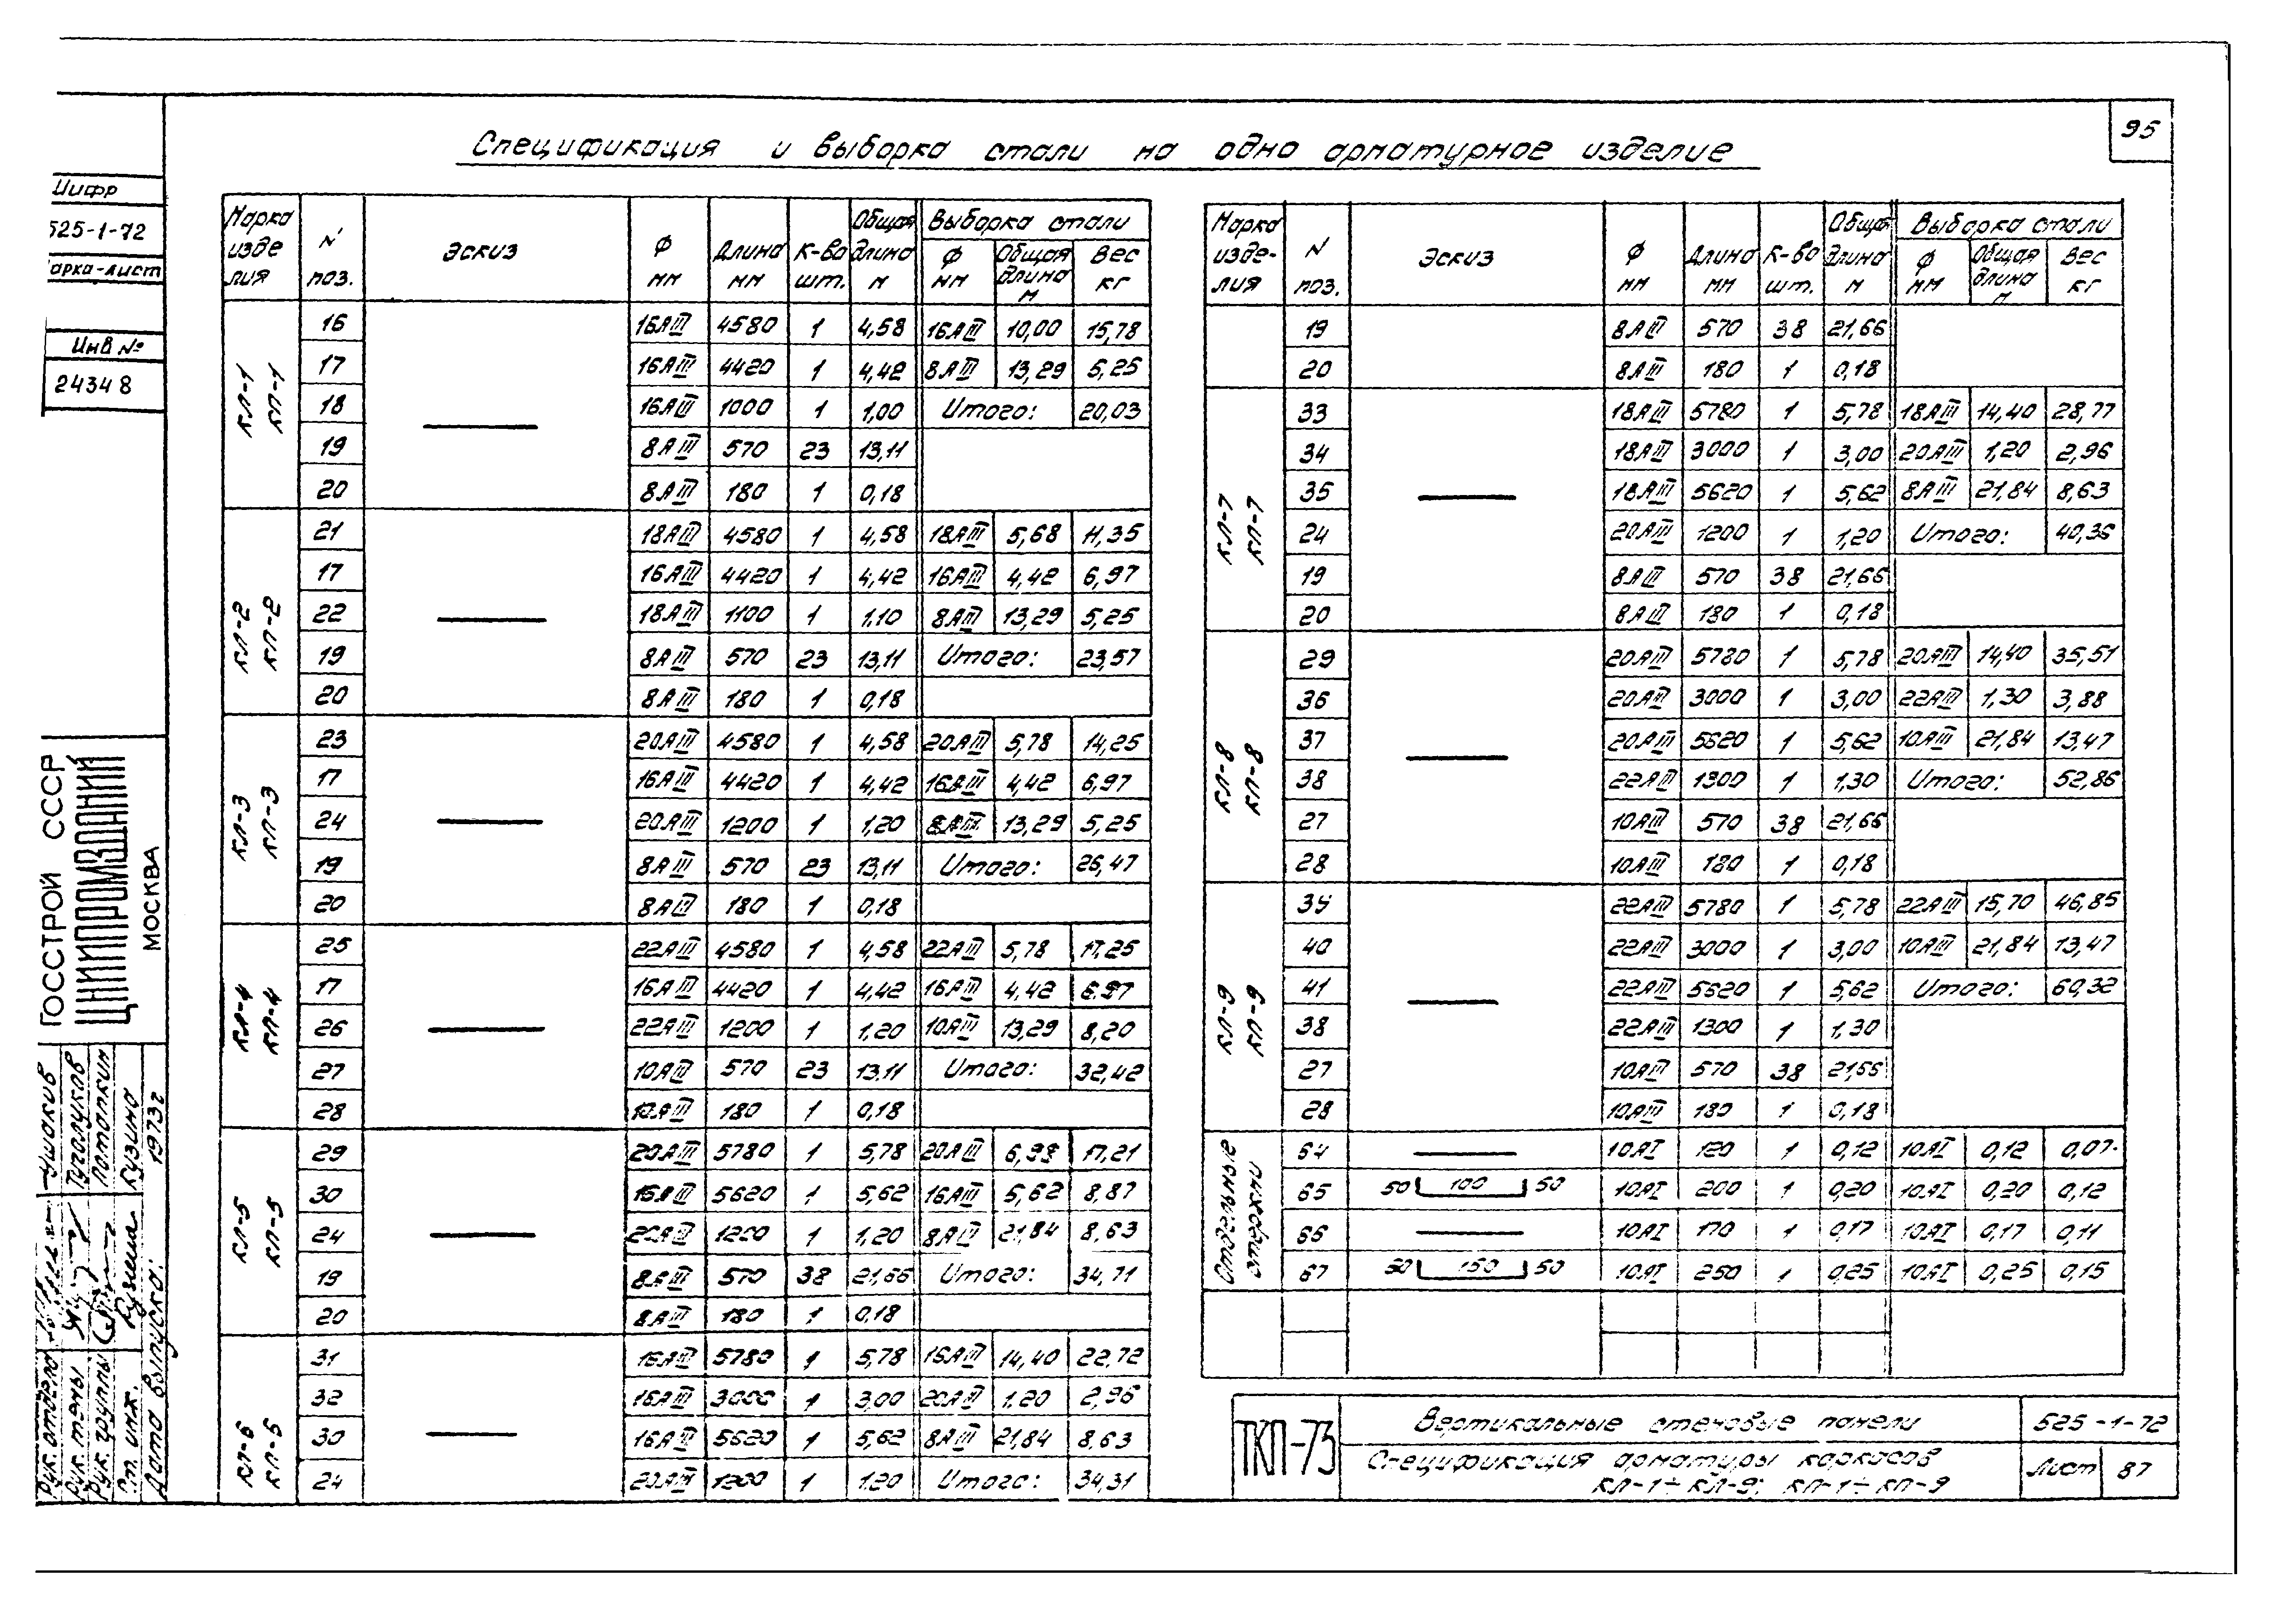 95
Спецификация и выборка стали на одно арматурное изделие
Шифр
525-1-72
арка-лист
Инв №
24348
ГОССТРОЙ СССР
ЦНИИПРОМЗДАНИЙ
МОСКВА
Рук. отдела Ушаков
Рук. темы Туголуков
Рук. группы Потапкин
Ст. инж. Кузина
Дата выпуска: 1973г
Марка изделия N поз. Эскиз Ф мм Длина мм К-во шт. Общая длина м Выборка стали
Ф мм Общая длина м Вес кг
КЛ-1 КП-1
16 16АIII 4580 1 4,58 16АIII 10,00 15,78
17 16АIII 4420 1 4,42 8АIII 13,29 5,25
18 16АIII 1000 1 1,00 Итого: 20,03
19 8АIII 570 23 13,11
20 8АIII 180 1 0,18
КЛ-2 КП-2
21 18АIII 4580 1 4,58 18АIII 5,68 11,35
17 16АIII 4420 1 4,42 16АIII 4,42 6,97
22 18АIII 1100 1 1,10 8АIII 13,29 5,25
19 8АIII 570 23 13,11 Итого: 23,57
20 8АIII 180 1 0,18
КЛ-3 КП-3
23 20АIII 4580 1 4,58 20АIII 5,78 14,25
17 16АIII 4420 1 4,42 16АIII 4,42 6,97
24 20АIII 1200 1 1,20 8АIII 13,29 5,25
19 8АIII 570 23 13,11 Итого: 26,47
20 8АIII 180 1 0,18
КЛ-4 КП-4
25 22АIII 4580 1 4,58 22АIII 5,78 17,25
17 16АIII 4420 1 4,42 16АIII 4,42 6,97
26 22АIII 1200 1 1,20 10АIII 13,29 8,20
27 10АIII 570 23 13,11 Итого: 32,42
28 10АIII 180 1 0,18
КЛ-5 КП-5
29 20АIII 5780 1 5,78 20АIII 6,98 17,21
30 16АIII 5620 1 5,62 16АIII 5,62 8,87
24 20АIII 1200 1 1,20 8АIII 21,84 8,63
19 8АIII 570 38 21,66 Итого: 34,71
20 8АIII 180 1 0,18
КЛ-6 КП-6
31 16АIII 5780 1 5,78 16АIII 14,40 22,72
32 16АIII 3000 1 3,00 20АIII 1,20 2,96
30 16АIII 5620 1 5,62 8АIII 21,84 8,63
24 20АIII 1200 1 1,20 Итого: 34,31
Марка изде-лия N поз. Эскиз Ф мм Длина мм К-во шт. Общая длина м Выборка стали
Ф мм Общая длина м Вес кг
19 8АIII 570 38 21,66
20 8АIII 180 1 0,18
КЛ-7 КП-7
33 18АIII 5780 1 5,78 18АIII 14,40 28,77
34 18АIII 3000 1 3,00 20АIII 1,20 2,96
35 18АIII 5620 1 5,62 8АIII 21,84 8,63
24 20АIII 1200 1 1,20 Итого: 40,36
19 8АIII 570 38 21,66
20 8АIII 180 1 0,18
КЛ-8 КП-8
29 20АIII 5780 1 5,78 20АIII 14,40 35,51
36 20АIII 3000 1 3,00 22АIII 1,30 3,88
37 20АIII 5620 1 5,62 10АIII 21,84 13,47
38 22АIII 1300 1 1,30 Итого: 52,86
27 10АIII 570 38 21,66
28 10АIII 180 1 0,18
КЛ-9 КП-9
39 22АIII 5780 1 5,78 22АIII 15,70 46,85
40 22АIII 3000 1 3,00 10АIII 21,84 13,47
41 22АIII 5620 1 5,62 Итого: 60,32
38 22АIII 1300 1 1,30
27 10АIII 570 38 21,66
28 10АIII 180 1 0,18
Отдельные стержни
64 10АI 120 1 0,12 10АI 0,12 0,07
65 50 100 50 10АI 200 1 0,20 10АI 0,20 0,12
66 10АI 170 1 0,17 10АI 0,17 0,11
67 50 150 50 10АI 250 1 0,25 10АI 0,25 0,15
ТКП-73
Вертикальные стеновые панели 525-1-72
Спецификация арматуры каркасов
КЛ-1÷КЛ-9; КП-1÷КП-9
Лист 87